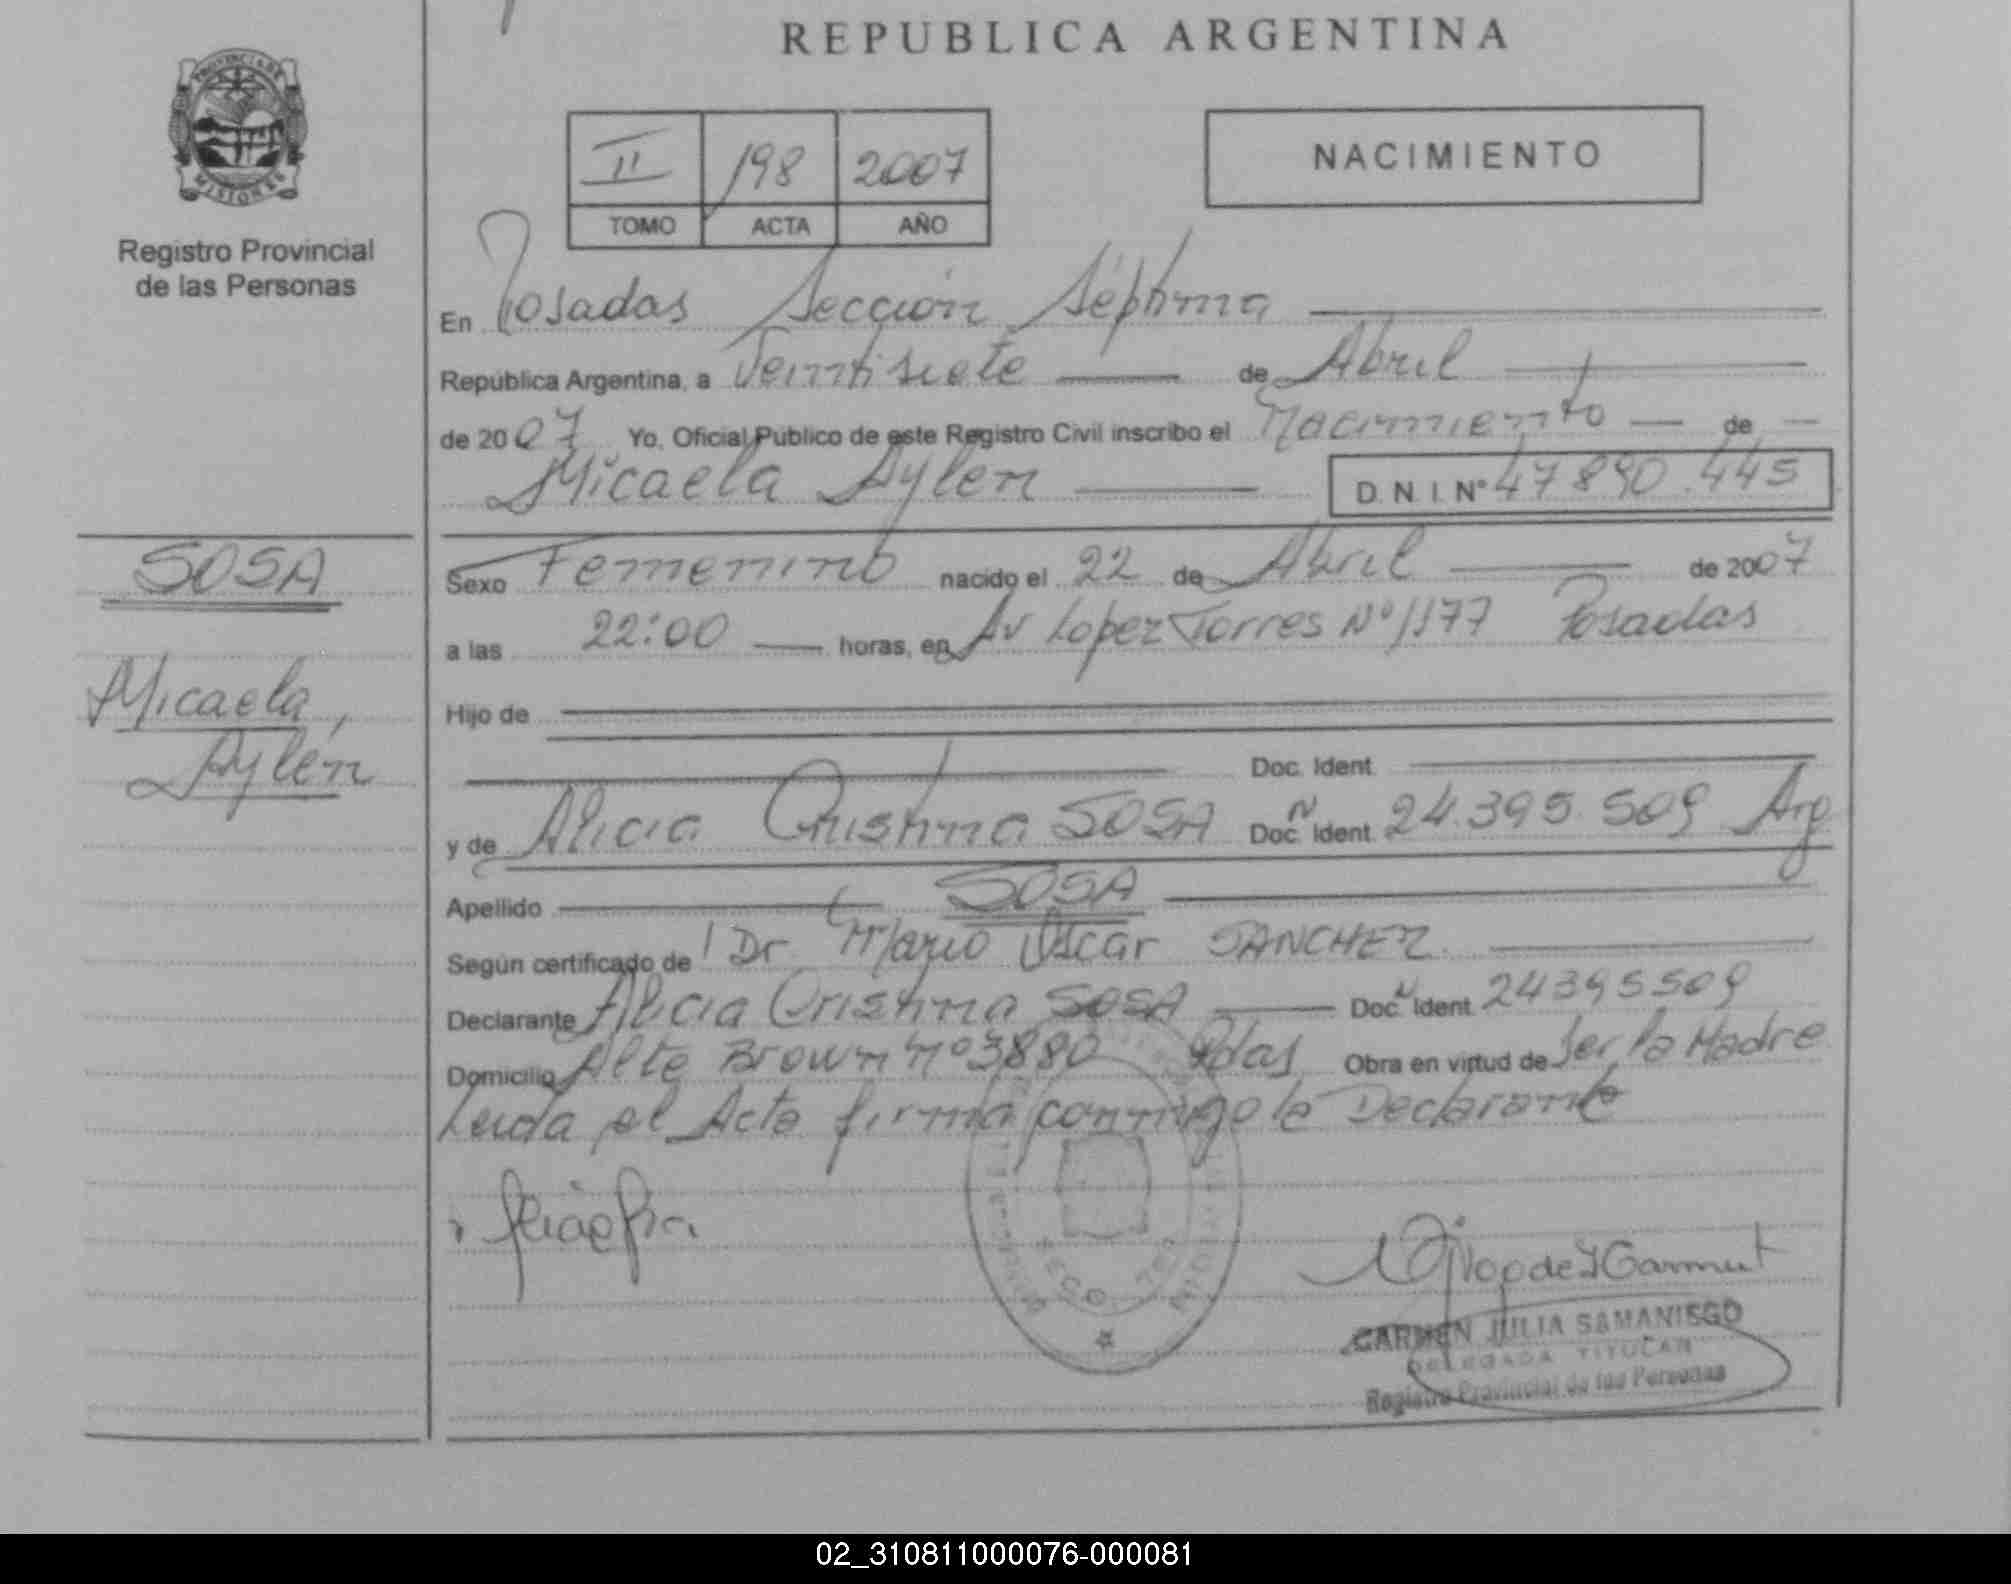 REPUBLICA ARGENTINA
PROVINCIA DE
MISIONES
Registro Provincial
de las Personas
II 198 2007
TOMO ACTA AÑO
NACIMIENTO
En Posadas Sección Séptima
República Argentina, a Veintisiete de Abril
de 2007 Yo, Oficial Público de este Registro Civil inscribo el Nacimiento de
Micaela Aylen D.N.I. Nº 47890.445
SOSA
Micaela,
Aylén
Sexo Femenino nacido el 22 de Abril de 2007
a las 22:00 horas, en Av Lopez Torres Nº 1177 Posadas
Hijo de
Doc. Ident.
y de Alicia Cristina SOSA Doc. Ident. 24.395.509 Arg
Apellido SOSA
Según certificado de Dr Mario Oscar SANCHEZ
Declarante Alicia Cristina SOSA Doc. Ident. 24395509
Domicilio Alte Brown nº 3880 Pdas Obra en virtud de Ser la Madre
Leida el Acta firma conmigo la Declarante
CARMEN JULIA SAMANIEGO
DELEGADA TITULAR
Registro Provincial de las Personas
02_310811000076-000081